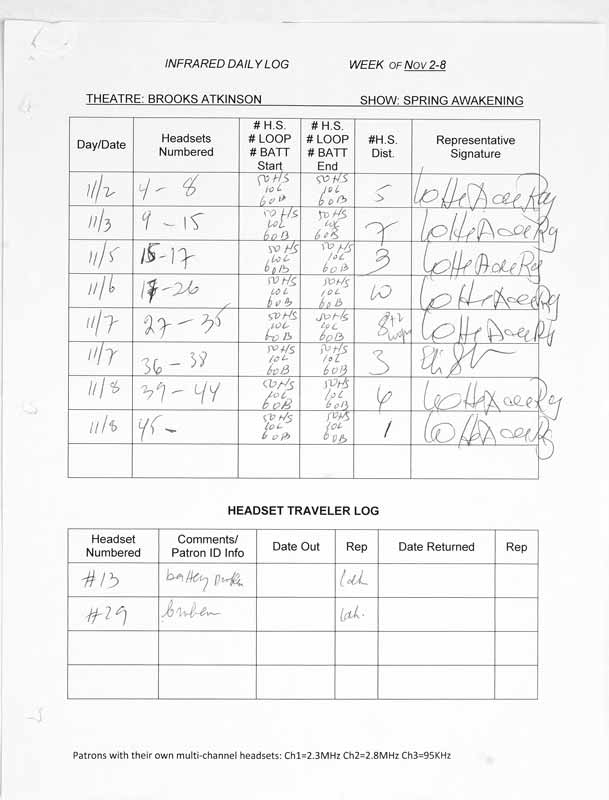 INFRARED DAILY LOG WEEK OF NOV 2-8
THEATRE: BROOKS ATKINSON SHOW: SPRING AWAKENING
Day/Date Headsets Numbered # H.S. # LOOP # BATT Start # H.S. # LOOP # BATT End #H.S. Dist. Representative Signature
11/2 4 - 8 50 HS 10L 60B 50 HS 10L 60B 5
11/3 9 - 15 50 HS 10L 60B 50 HS 10L 60B 7
11/5 15-17 50 HS 10L 60B 50 HS 10L 60B 3
11/6 17-26 50 HS 10L 60B 50 HS 10L 60B 10
11/7 27 - 35 50 HS 10L 60B 50 HS 10L 60B 8+2
11/7 36 - 38 50 HS 10L 60B 50 HS 10L 60B 3
11/8 39 - 44 50 HS 10L 60B 50 HS 10L 60B 6
11/8 45 - 50 HS 10L 60B 50 HS 10L 60B 1
HEADSET TRAVELER LOG
Headset Numbered Comments/ Patron ID Info Date Out Rep Date Returned Rep
#13 battery broken
#29 broken
Patrons with their own multi-channel headsets: Ch1=2.3MHz Ch2=2.8MHz Ch3=95KHz